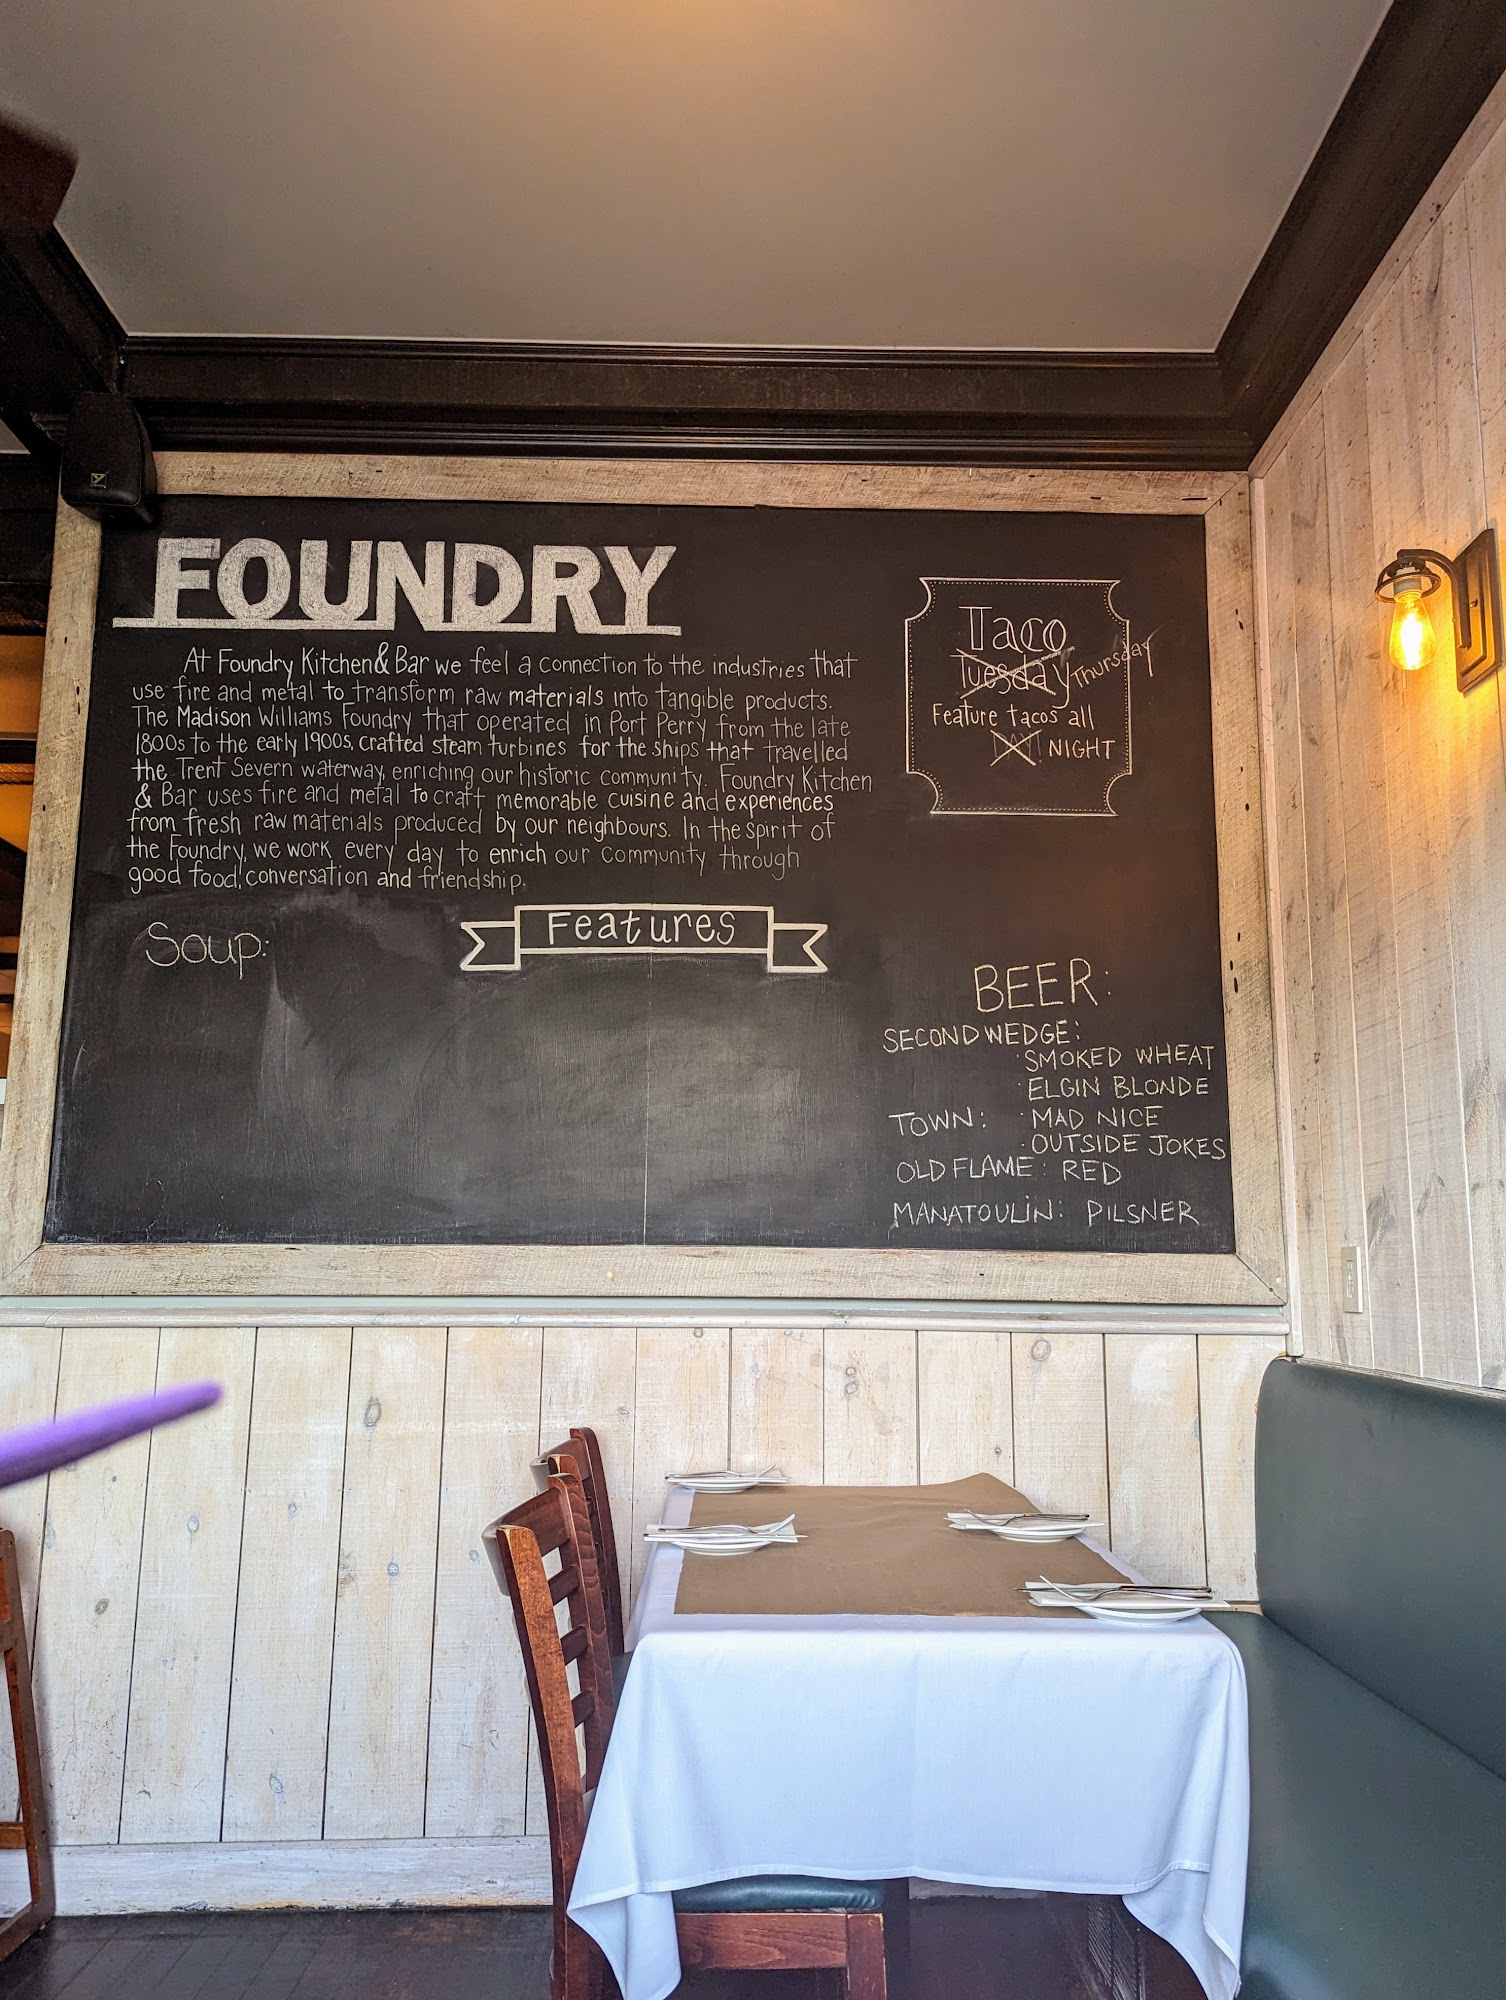 FOUNDRY
At Foundry Kitchen & Bar we feel a connection to the industries that
use fire and metal to transform raw materials into tangible products.
The Madison Williams Foundry that operated in Port Perry from the late
1800s to the early 1900s, crafted steam turbines for the ships that travelled
the Trent Severn waterway, enriching our historic community. Foundry Kitchen
& Bar uses fire and metal to craft memorable cuisine and experiences
from fresh raw materials produced by our neighbours. In the spirit of
the Foundry, we work every day to enrich our community through
good food, conversation and friendship.
Soup:
Features
Taco
Tuesday Thursday
Feature tacos all
DAY! NIGHT
BEER:
SECOND WEDGE:
· SMOKED WHEAT
· ELGIN BLONDE
TOWN: · MAD NICE
· OUTSIDE JOKES
OLD FLAME: RED
MANATOULIN: PILSNER